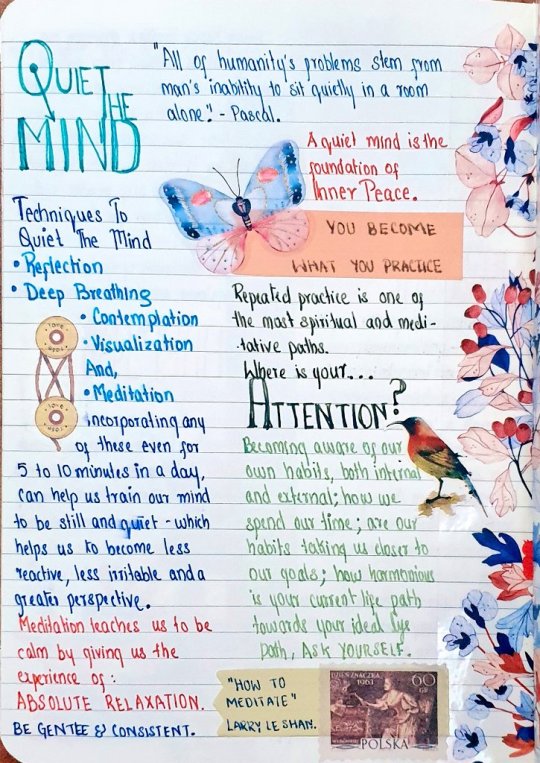 QUIET
THE
MIND
"All of humanity's problems stem from
man's inability to sit quietly in a room
alone." - Pascal.
A quiet mind is the
foundation of
Inner Peace.
YOU BECOME
WHAT YOU PRACTICE
Techniques To
Quiet The Mind
• Reflection
• Deep Breathing
• Contemplation
• Visualization
And,
• Meditation
incorporating any
of these even for
5 to 10 minutes in a day,
can help us train our mind
to be still and quiet - which
helps us to become less
reactive, less irritable and a
greater perspective.
Meditation teaches us to be
calm by giving us the
experience of :
ABSOLUTE RELAXATION.
BE GENTEE & CONSISTENT.
Repeated practice is one of
the most spiritual and medi-
-tative paths.
Where is your...
ATTENTION?
Becoming aware of our
own habits, both internal
and external; how we
spend our time; are our
habits taking us closer to
our goals; how harmonious
is your current life path
towards your ideal life
path, ASK YOURSELF.
"HOW TO
MEDITATE"
LARRY LE SHAN.
DZIEŃ ZNACZKA
1961
60
GR
POLSKA